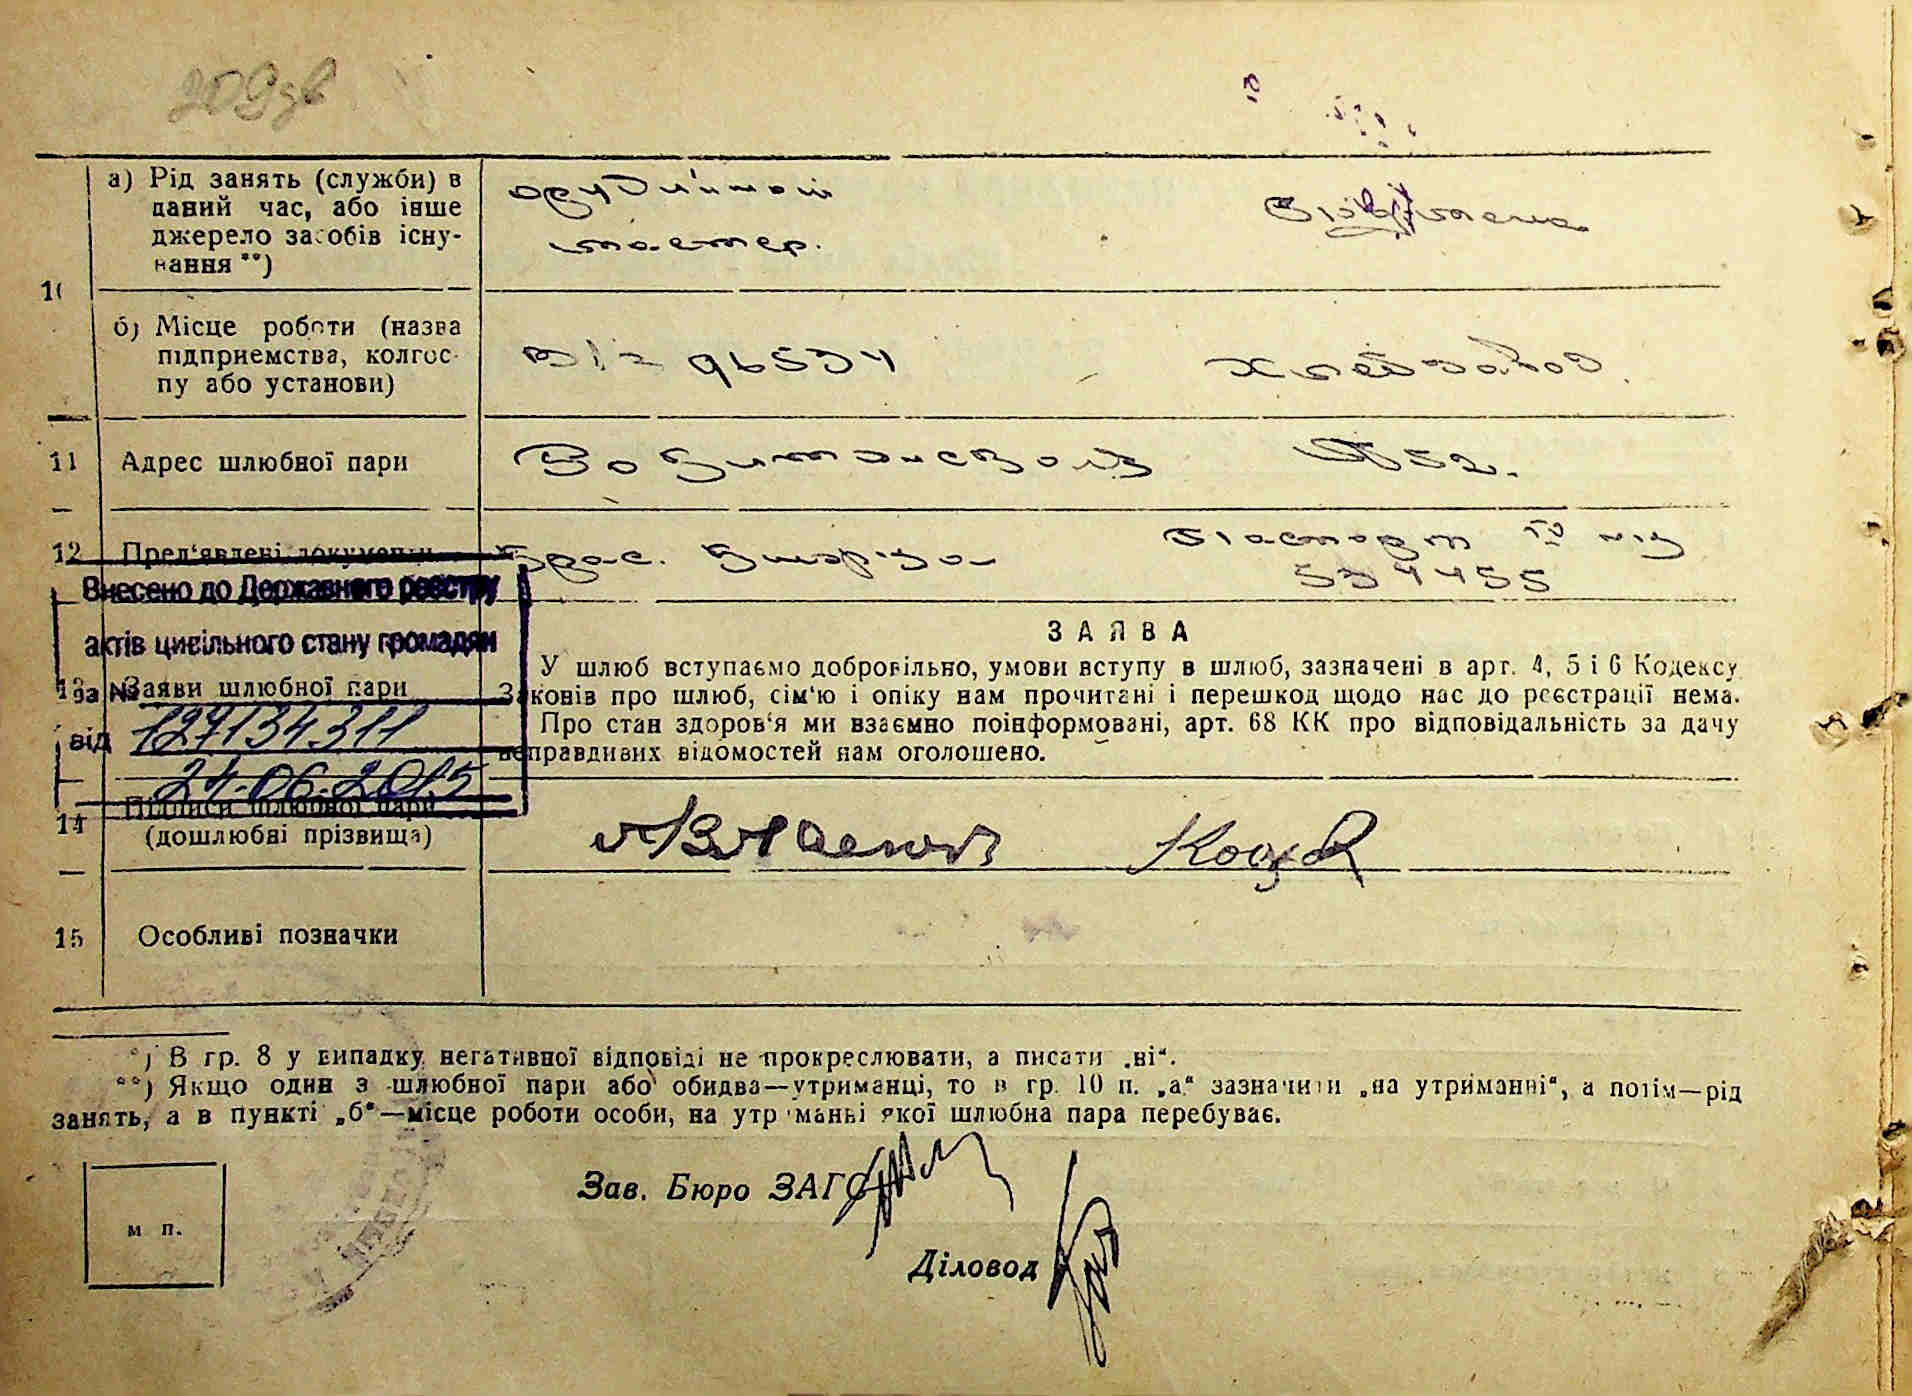 209зв
а) Рід занять (служби) в
даний час, або інше
джерело засобів існу-
вання **)
мастер.
10
б) Місце роботи (назва
підприємства, колгос-
пу або установи)
В/ч 96534
Хлебзавод
11 Адрес шлюбної пари
52.
12 Пред'явлені документи
Паспорт IV
534455
Внесено до Державного реєстру
актів цивільного стану громадян
за №
127134311
від
24.06.2015
13 Заяви шлюбної пари
ЗАЯВА
У шлюб вступаємо добровільно, умови вступу в шлюб, зазначені в арт. 4, 5 і 6 Кодексу
Законів про шлюб, сім'ю і опіку нам прочитані і перешкод щодо нас до реєстрації нема.
Про стан здоров'я ми взаємно поінформовані, арт. 68 КК про відповідальність за дачу
неправдивих відомостей нам оголошено.
14 Підписи шлюбної пари
(дошлюбні прізвища)
15 Особливі позначки
*) В гр. 8 у випадку негативної відповіді не прокреслювати, а писати „ні“.
**) Якщо один з шлюбної пари або обидва—утриманці, то в гр. 10 п. „а“ зазначити „на утриманні“, а потім—рід
занять, а в пункті „б“—місце роботи особи, на утриманні якої шлюбна пара перебуває.
Зав. Бюро ЗАГС
м п.
Діловод